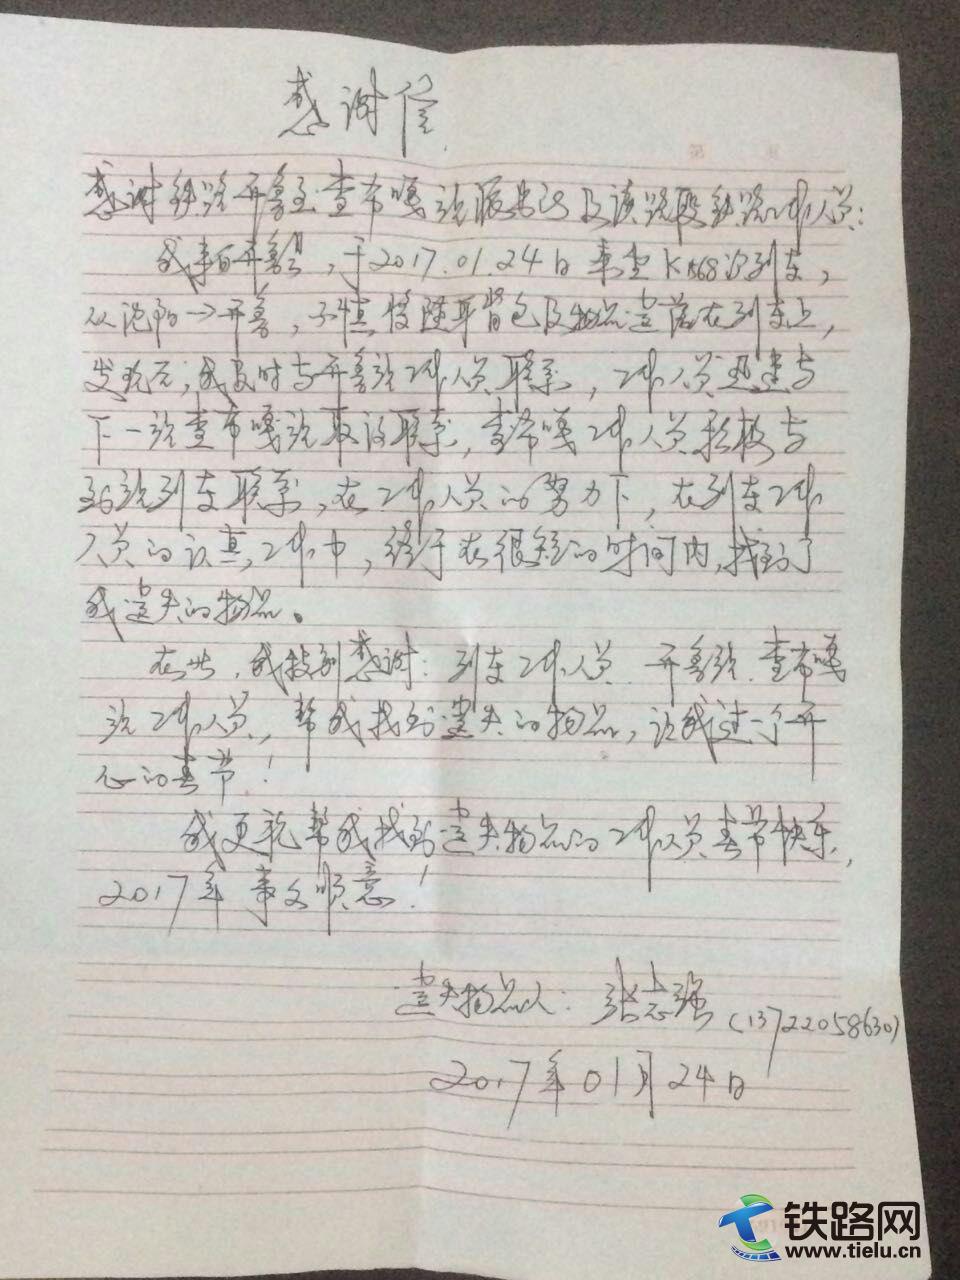 感谢信
感谢铁路开鲁至查布嘎站服务员及该路段铁路工作人员:
我来自开鲁县,于2017.01.24日乘坐K568次列车,
从沈阳→开鲁,不慎将随身背包及物品遗落在列车上,
发现后,我及时与开鲁站工作人员联系,工作人员迅速与
下一站查布嘎站取得联系,查布嘎工作人员积极与
到站列车联系,在工作人员的努力下,在列车工作
人员的认真工作中,终于在很短的时间内,找到了
我遗失的物品。
在此,我特别感谢:列车工作人员.开鲁站.查布嘎
站工作人员,帮我找到遗失的物品,让我过一个开
心的春节!
我更祝帮我找到遗失物品的工作人员春节快乐,
2017年事事顺意!
遗失物品人:张志强(13722058630)
2017年01月24日
铁路网
www.tielu.cn